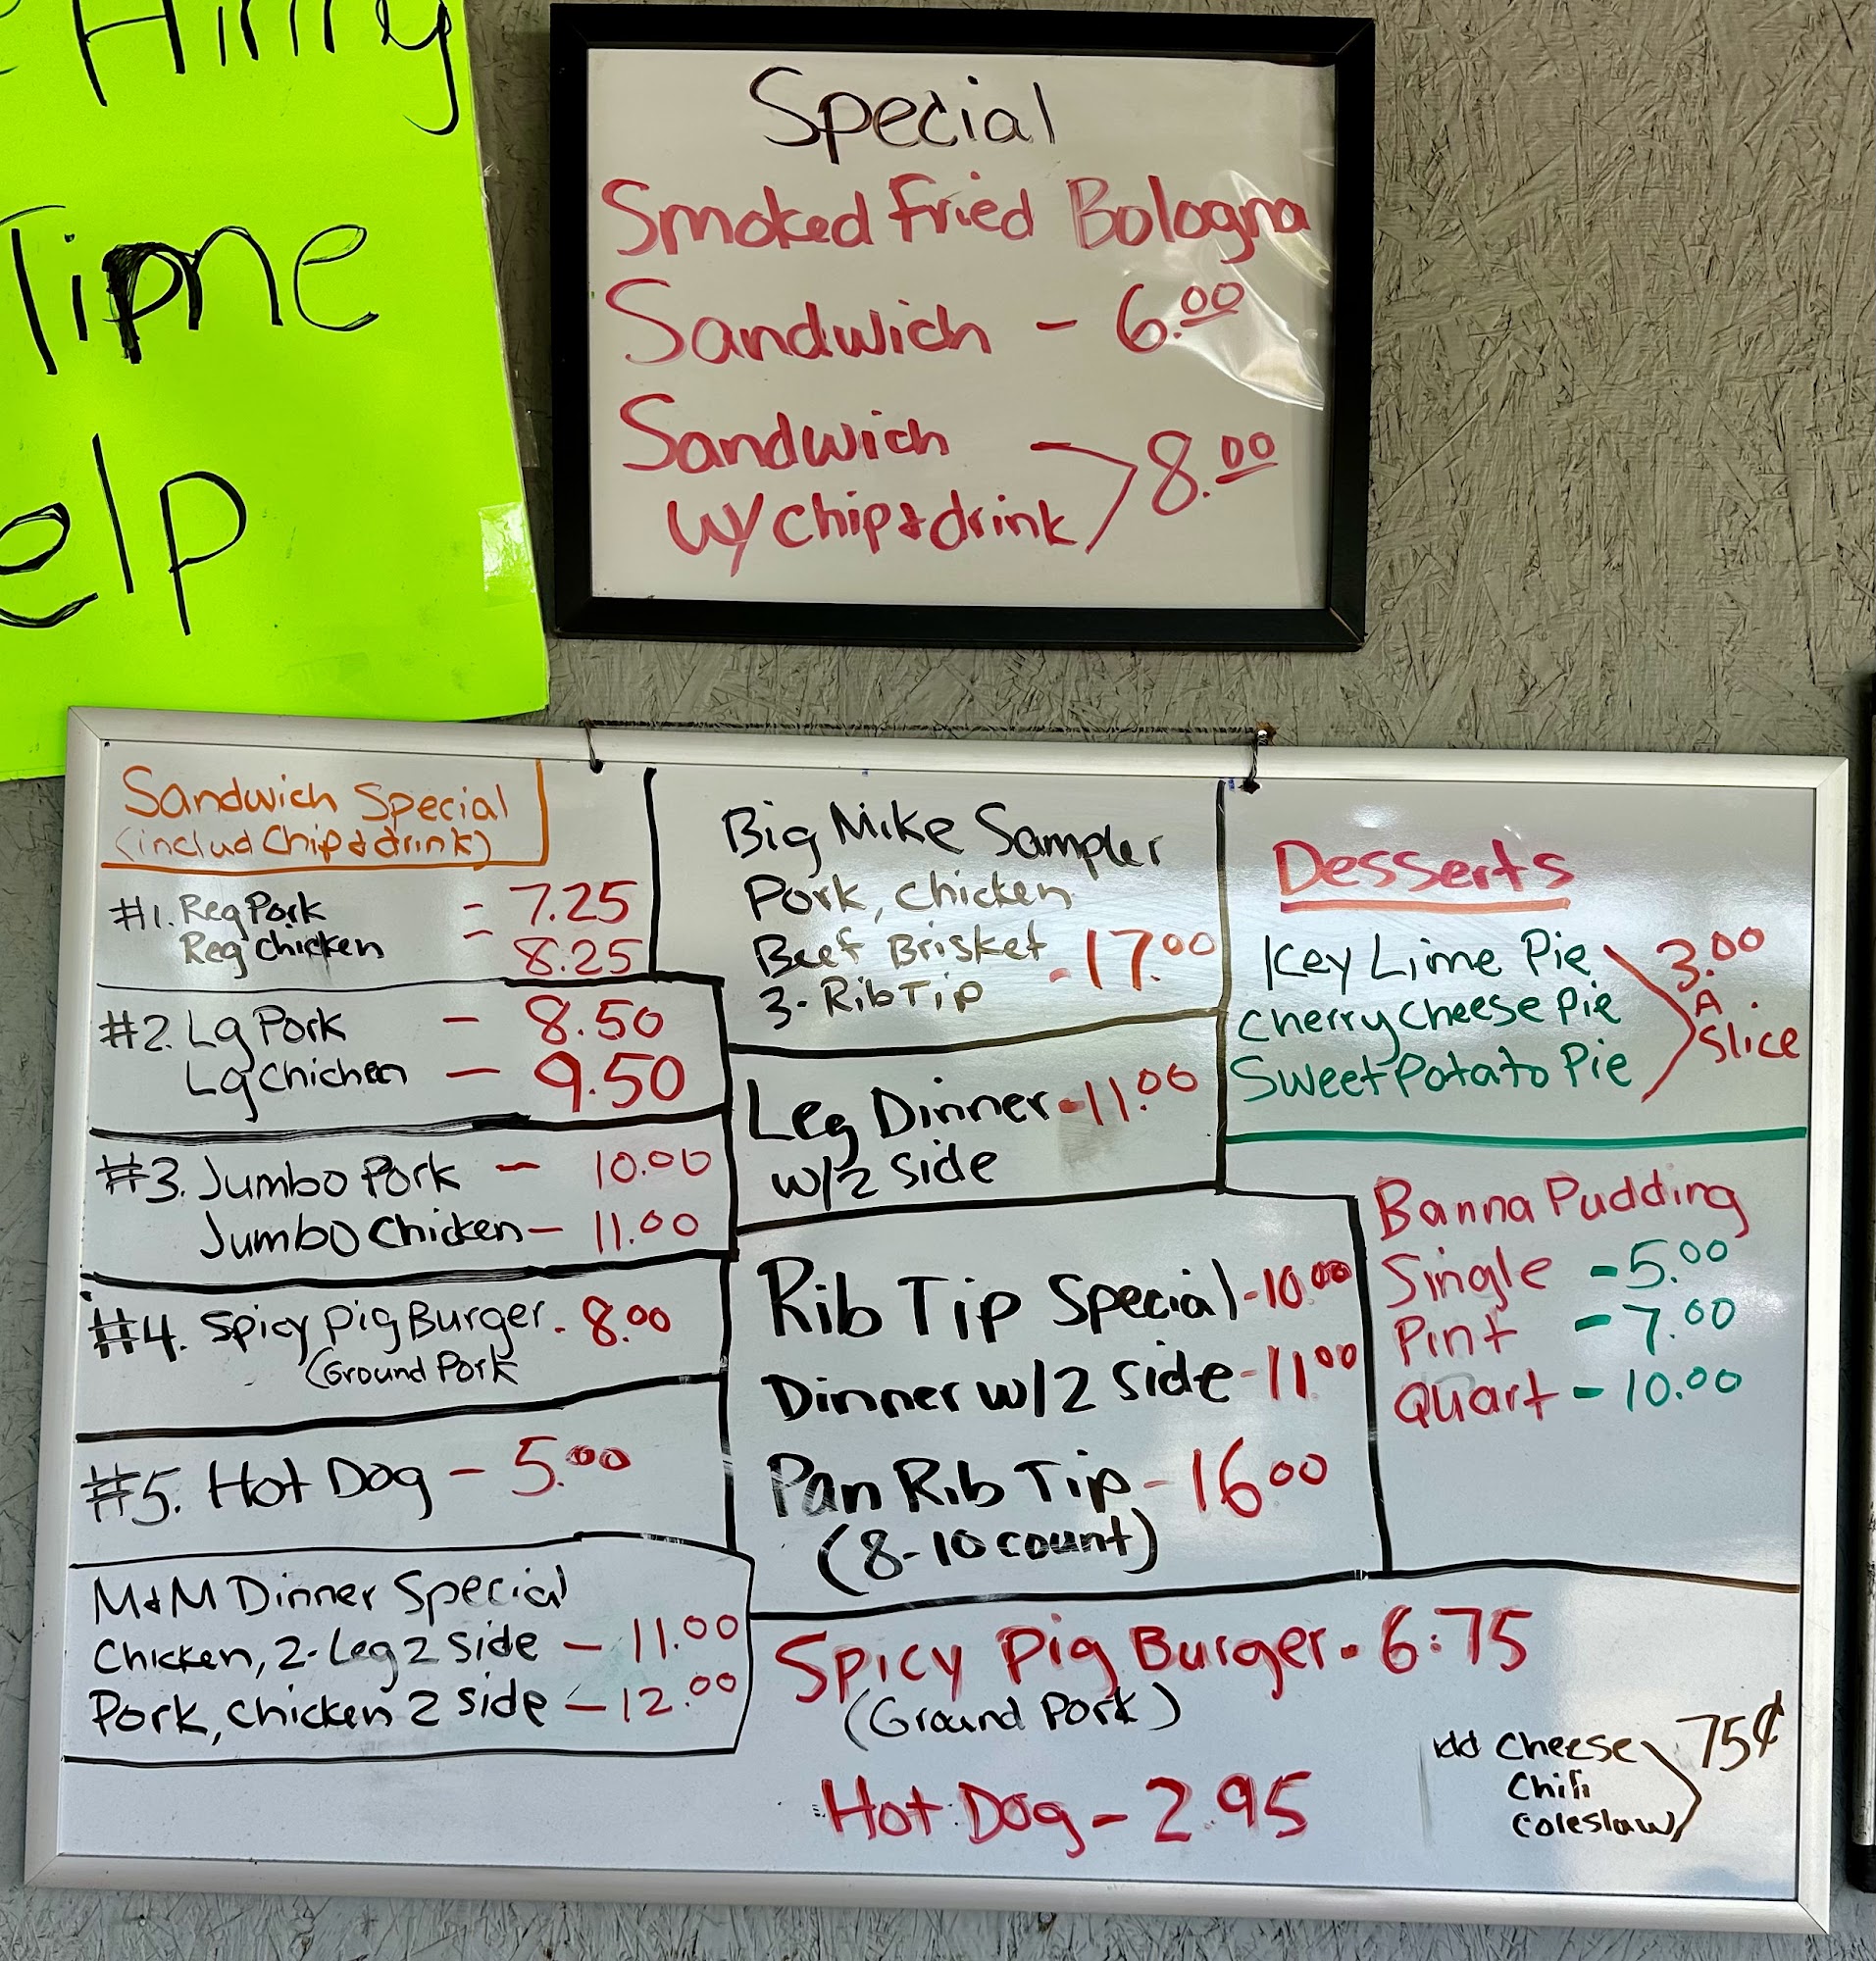 Hiring
Time
elp
Special
Smoked Fried Bologna
Sandwich - 6.00
Sandwich
w/ chip & drink 8.00
Sandwich Special
(includ Chip & drink)
#1. Reg Pork = 7.25
Reg Chicken = 8.25
#2. Lg Pork - 8.50
Lg Chichen - 9.50
#3. Jumbo Pork - 10.00
Jumbo Chicken - 11.00
#4. Spicy Pig Burger - 8.00
(Ground Pork
#5. Hot Dog - 5.00
M&M Dinner Special
Chicken, 2-Leg 2 side - 11.00
Pork, Chicken 2 side - 12.00
Big Mike Sampler
Pork, Chicken
Beef Brisket - 17.00
3- Rib Tip
Leg Dinner - 11.00
w/2 side
Rib Tip Special - 10.00
Dinner w/2 side - 11.00
Pan Rib Tip - 16.00
(8-10 count)
Desserts
Key Lime Pie
Cherry Cheese Pie
Sweet Potato Pie
3.00
A
Slice
Banna Pudding
Single - 5.00
Pint - 7.00
Quart - 10.00
Spicy Pig Burger - 6:75
(Ground Pork)
Hot Dog - 2.95
Add Cheese 75¢
Chili
Coleslaw